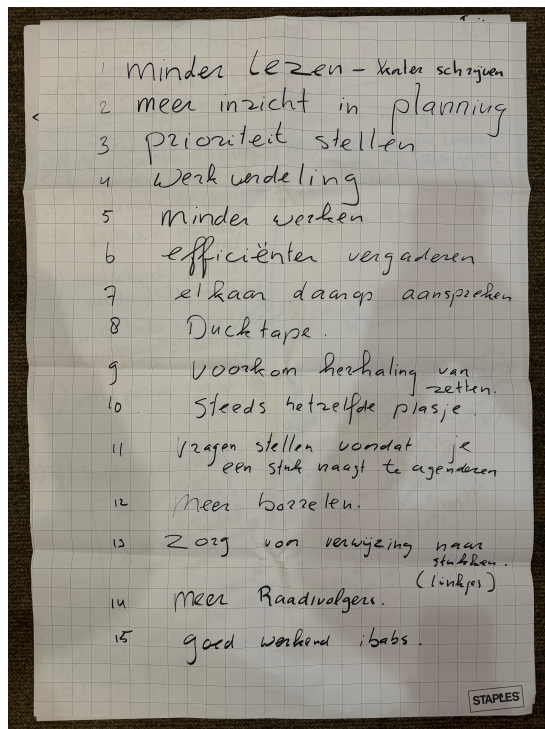 1 minder lezen - korter schrijven
2 meer inzicht in planning
3 prioriteit stellen
4 werkverdeling
5 minder werken
6 efficiënter vergaderen
7 elkaar daarop aanspreken
8 Ducktape.
9 voorkom herhaling van
zetten.
10 Steeds hetzelfde plasje.
11 vragen stellen voordat je
een stuk vraagt te agenderen
12 meer borrelen.
13 Zorg voor verwijzing naar
stukken.
(linkjes)
14 meer Raadsvolgers.
15 goed werkend ibabs.
STAPLES